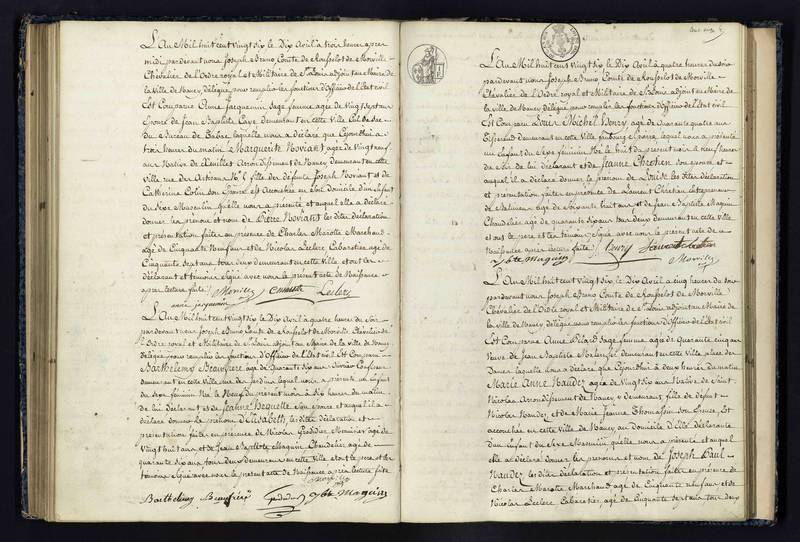 L'An Mil huit cent vingt six le Dix Avril à trois heures après
midi pardevant nous Joseph Bruno Comte de Rousselot de Morville
Chevalier de l'Ordre royal et Militaire de St Louis adjoint au Maire de
la ville de Nancy délégué pour remplir les fonctions d'Officier de l'Etat civil
Est Comparue Anne Jacquemin sage femme agée de vingt sept ans
Epouse de Jean Baptiste Caye demeurant en cette ville
du Bureau de Tabac laquelle nous a déclaré que cejourd'hui à
trois heures du matin Marguerite Noviant agée de vingt neuf
ans Native de Xeuilley Arrondissement de Nancy demeurant en cette
ville rue des Artisans fille des défunts Joseph Noviant et de
Catherine Colin son Epouse est Accouchée en son domicile d'un Enfant
du Sexe Masculin qu'elle nous a présenté et auquel elle a déclaré
donner les prénom et nom de Pierre Noviant les dites déclaration
et présentation faites en présence de Charles Marotte Marchand
agé de Cinquante Neuf ans et de Nicolas Leclerc Cabaretier agé de
Cinquante sept ans tous deux demeurant en cette ville et ont les
déclarant et témoins Signé avec nous le présent acte de Naissance
après lecture faite Morville C marotte Leclerc
anne jacquemin
L'An Mil huit cent vingt six le Dix Avril à quatre heures du soir
pardevant nous Joseph Bruno Comte de Rousselot de Morville Chevalier de
l'Ordre royal et Militaire de St Louis adjoint au Maire de la ville de Nancy
délégué pour remplir les fonctions d'Officier de l'Etat civil Est Comparu
Barthelemy Beaufrere agé de Quarante Six ans Confiseur
demeurant en cette ville rue des Jardins lequel nous a présenté un Enfant
du Sexe féminin Né le Neuf du présent mois à dix heures du matin
de lui déclarant et de Jeanne Hequelle son Epouse et auquel il a
déclaré donner le prénom d'Elisabeth les dites déclaration et
présentation faites en présence de Nicolas Grodidier Menuisier agé de
vingt huit ans et de Jean Baptiste Maguin Chandelier agé de
quarante six ans tous deux demeurant en cette ville et ont le père et les
témoins Signé avec nous le présent acte de Naissance après lecture faite
Morville
Barthelemy Beaufrere Grodidier J bte maguin
L'An Mil huit cent vingt six le Dix Avril à quatre heures du soir
pardevant nous Joseph Bruno Comte de Rousselot de Morville
Chevalier de l'Ordre royal et Militaire de St Louis adjoint au Maire de
la ville de Nancy délégué pour remplir les fonctions d'Officier de l'Etat civil
Est Comparu Louis Michel Henry agé de Quarante quatre ans
Tisserand demeurant en cette ville faubourg St Pierre lequel nous a présenté
un Enfant du Sexe féminin Né le huit du présent mois à neuf heures
du soir de lui déclarant et de Jeanne Chretien son épouse et
auquel il a déclaré donner le prénom de Louise les dites déclaration
et présentation faites en présence de Laurent Chretien Entrepreneur
de Batiment agé de Soixante huit ans et de Jean Baptiste Maguin
Chandelier agé de quarante six ans tous deux demeurant en cette ville
et ont le père et les témoins Signé avec nous le présent acte de
Naissance après lecture faite Henry Laurent chretien
J bte maguin Morville
L'An Mil huit cent vingt six le Dix Avril à cinq heures du soir
pardevant nous Joseph Bruno Comte de Rousselot de Morville
Chevalier de l'Ordre royal et Militaire de St Louis adjoint au Maire de
la ville de Nancy délégué pour remplir les fonctions d'Officier de l'Etat civil
Est Comparue Anne Pilard Sage femme agée de Quarante cinq ans
Veuve de Jean Baptiste demeurant en cette Ville place des
Dames laquelle nous a déclaré que Cejourd'hui à deux heures du matin
Marie Anne Naudez agée de Vingt six ans Native de Saint
Nicolas Arrondissement de Nancy y demeurant fille de défunt
Nicolas Naudez et de Marie Jeanne Thomassin son épouse Est
accouchée en cette ville de Nancy au domicile d'Elle déclarante
d'un Enfant du Sexe Masculin qu'elle nous a présenté et auquel
elle a déclaré donner les prénoms et nom de Joseph Paul
Naudez les dites déclaration et présentation faites en présence de
Charles Marotte Marchand agé de Cinquante neuf ans et de
Nicolas Leclerc Cabaretier agé de Cinquante Sept ans tous deux